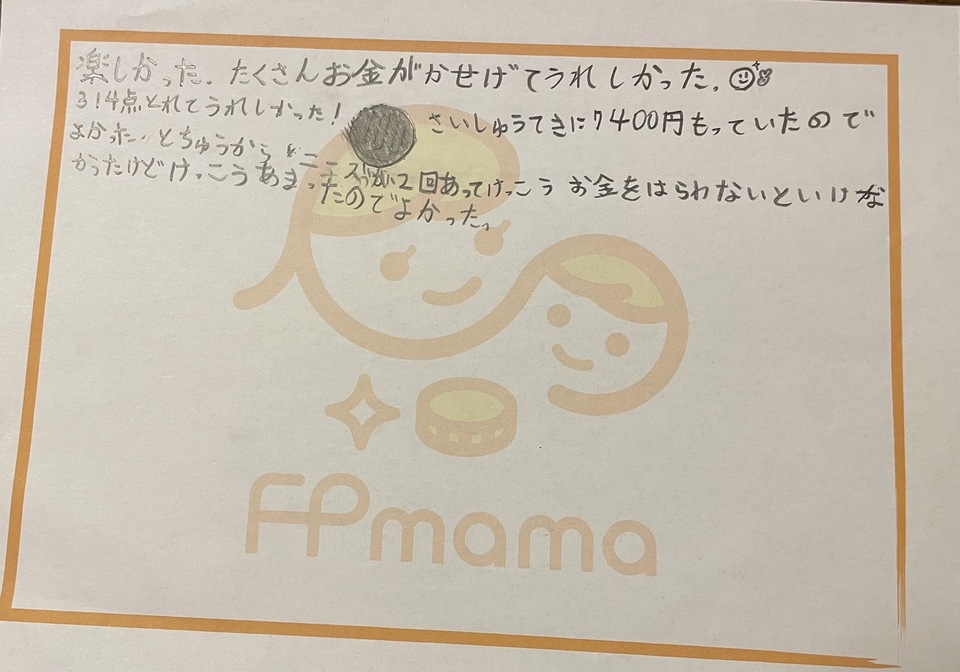 楽しかった。たくさんお金がかせげてうれしかった。
314点とれてうれしかった！ さいしゅうてきに7400円もっていたので
よかった。とちゅうから ニュースが2回あってけっこうお金をはらわないといけな
かったけどけっこうあまったのでよかった。
FPmama